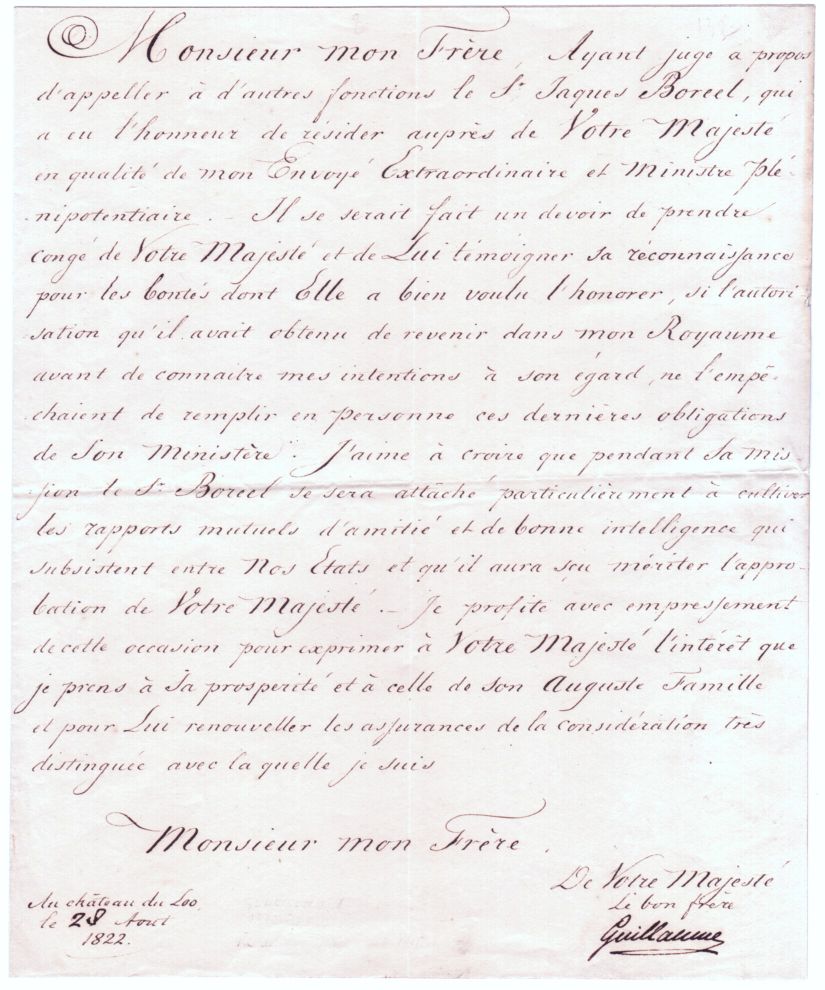 Monsieur mon Frère, Ayant jugé a propos
d'appeller à d'autres fonctions le Sr Jaques Boreel, qui
a eu l'honneur de résider auprès de Votre Majesté
en qualité de mon Envoyé Extraordinaire et Ministre Plé-
-nipotentiaire. _ Il se serait fait un devoir de prendre
congé de Votre Majesté et de Lui témoigner sa réconnaissance
pour les bontés dont Elle a bien voulu l'honorer, si l'autori-
-sation qu'il avait obtenu de revenir dans mon Royaume
avant de connaitre mes intentions à son égard, ne l'empê-
-chaient de remplir en personne ces dernières obligations
de Son Ministère. J'aime à croire que pendant Sa mis-
-sion le Sr Boreel se sera attâché particulièrement à cultiver
les rapports mutuels d'amitié et de bonne intelligence qui
subsistent entre Nos Etats et qu'il aura sçu mériter l'appro-
-bation de Votre Majesté. _ Je profite avec empressement
de cette occasion pour exprimer à Votre Majesté l'intérêt que
je prens à Sa prosperité et à celle de Son Auguste Famille
et pour Lui renouveller les assurances de la considération très
distinguée avec la quelle je suis
Monsieur mon Frère.
De Votre Majesté
Le bon frère
Guillaume
Au château du Loo
le 28 Aout
1822.